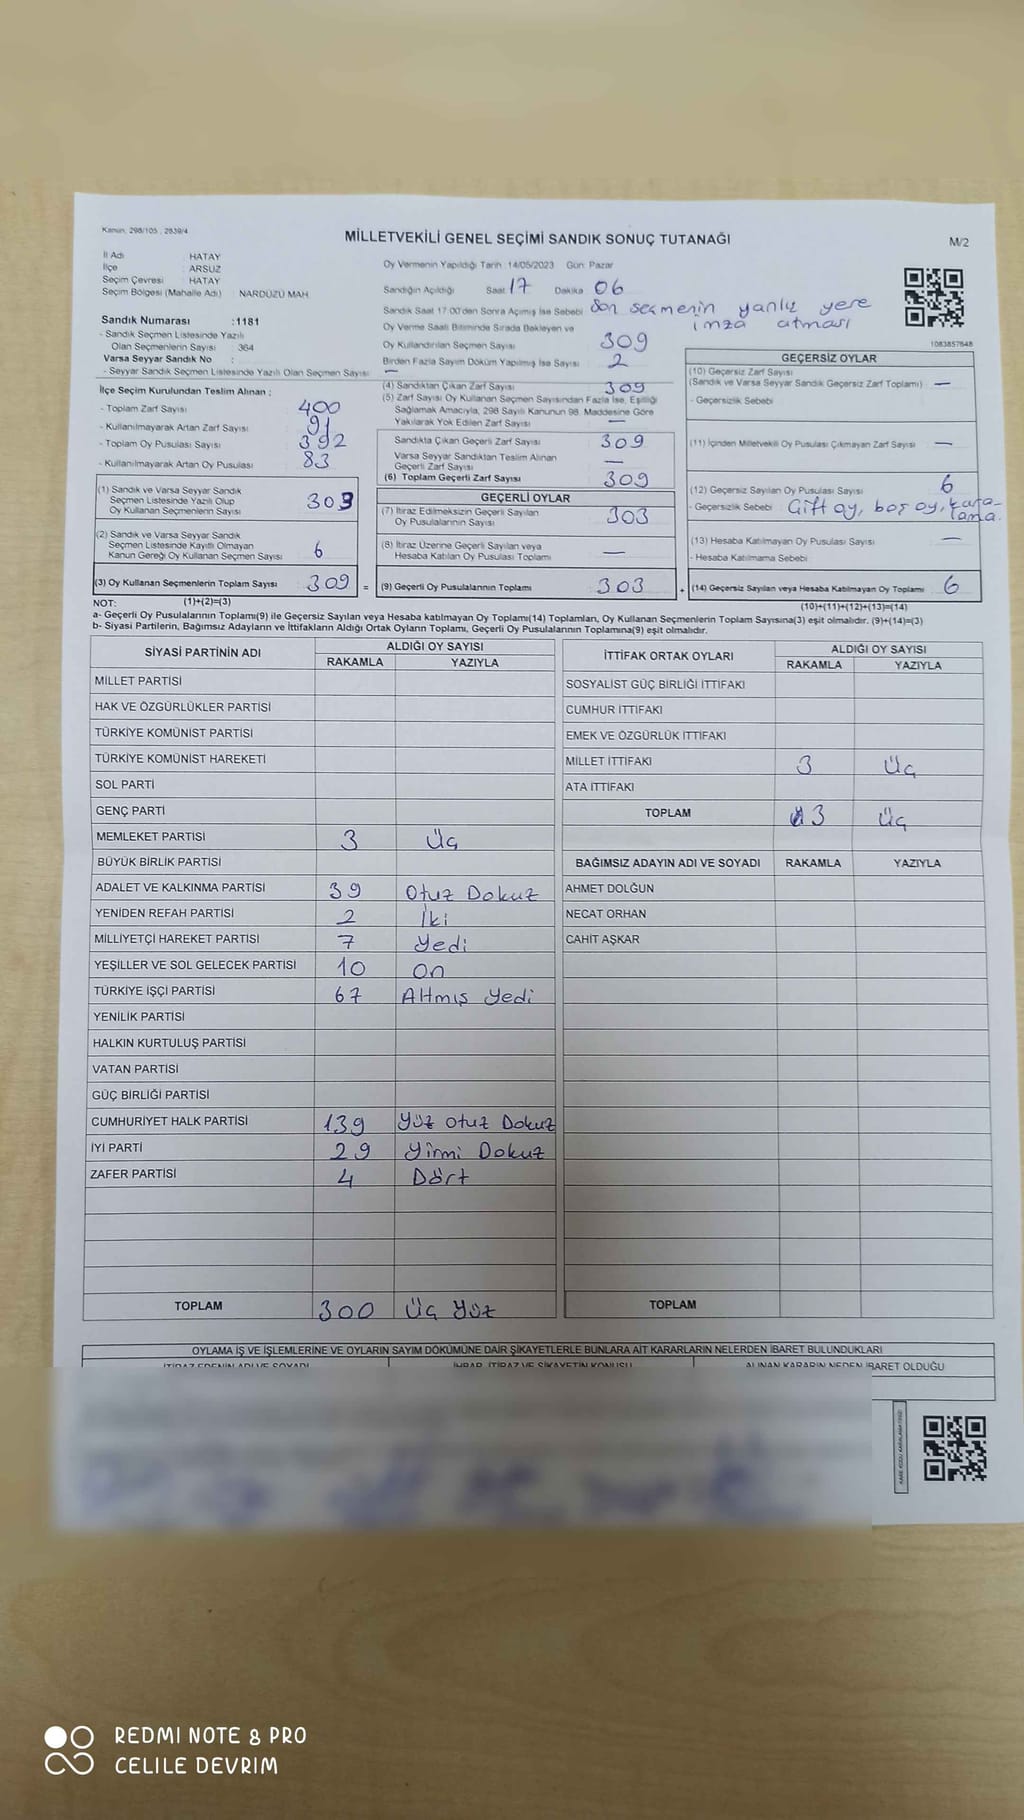 Kanun, 298/105 , 2839/4
MİLLETVEKİLİ GENEL SEÇİMİ SANDIK SONUÇ TUTANAĞI
M/2
İl Adı : HATAY
İlçe : ARSUZ
Seçim Çevresi : HATAY
Seçim Bölgesi (Mahalle Adı) : NARDÜZÜ MAH
Sandık Numarası :1181
- Sandık Seçmen Listesinde Yazılı
Olan Seçmenlerin Sayısı : 364
Varsa Seyyar Sandık No :
- Seyyar Sandık Seçmen Listesinde Yazılı Olan Seçmen Sayısı : —
İlçe Seçim Kurulundan Teslim Alınan :
- Toplam Zarf Sayısı 400
- Kullanılmayarak Artan Zarf Sayısı 91
- Toplam Oy Pusulası Sayısı 392
- Kullanılmayarak Artan Oy Pusulası 83
(1) Sandık ve Varsa Seyyar Sandık
Seçmen Listesinde Yazılı Olup
Oy Kullanan Seçmenlerin Sayısı 303
(2) Sandık ve Varsa Seyyar Sandık
Seçmen Listesinde Kayıtlı Olmayan
Kanun Gereği Oy Kullanan Seçmen Sayısı 6
(3) Oy Kullanan Seçmenlerin Toplam Sayısı 309 =
(1)+(2)=(3)
Oy Vermenin Yapıldığı Tarih :14/05/2023 Gün: Pazar
Sandığın Açıldığı Saat 17 Dakika 06
Sandık Saat 17:00'den Sonra Açılmış İse Sebebi Son seçmenin yanlış yere
imza atması
Oy Verme Saati Bitiminde Sırada Bekleyen ve
Oy Kullandırılan Seçmen Sayısı 309
Birden Fazla Sayım Döküm Yapılmış İse Sayısı 2
(4) Sandıktan Çıkan Zarf Sayısı 309
(5) Zarf Sayısı Oy Kullanan Seçmen Sayısından Fazla İse, Eşitliği
Sağlamak Amacıyla, 298 Sayılı Kanunun 98. Maddesine Göre
Yakılarak Yok Edilen Zarf Sayısı —
Sandıkta Çıkan Geçerli Zarf Sayısı 309
Varsa Seyyar Sandıktan Teslim Alınan
Geçerli Zarf Sayısı —
(6) Toplam Geçerli Zarf Sayısı 309
GEÇERLİ OYLAR
(7) İtiraz Edilmeksizin Geçerli Sayılan
Oy Pusulalarının Sayısı 303
(8) İtiraz Üzerine Geçerli Sayılan veya
Hesaba Katılan Oy Pusulası Toplamı —
(9) Geçerli Oy Pusulalarının Toplamı 303 +
1083857648
GEÇERSİZ OYLAR
(10) Geçersiz Zarf Sayısı
(Sandık ve Varsa Seyyar Sandık Geçersiz Zarf Toplamı) —
- Geçersizlik Sebebi
(11) İçinden Milletvekili Oy Pusulası Çıkmayan Zarf Sayısı —
(12) Geçersiz Sayılan Oy Pusulası Sayısı 6
- Geçersizlik Sebebi Çift oy, boş oy, kara-
lama.
(13) Hesaba Katılmayan Oy Pusulası Sayısı —
- Hesaba Katılmama Sebebi
(14) Geçersiz Sayılan veya Hesaba Katılmayan Oy Toplamı 6
(10)+(11)+(12)+(13)=(14)
NOT:
a- Geçerli Oy Pusulalarının Toplamı(9) ile Geçersiz Sayılan veya Hesaba katılmayan Oy Toplamı(14) Toplamları, Oy Kullanan Seçmenlerin Toplam Sayısına(3) eşit olmalıdır. (9)+(14)=(3)
b- Siyasi Partilerin, Bağımsız Adayların ve İttifakların Aldığı Ortak Oyların Toplamı, Geçerli Oy Pusulalarının Toplamına(9) eşit olmalıdır.
SİYASİ PARTİNİN ADI ALDIĞI OY SAYISI
RAKAMLA YAZIYLA
MİLLET PARTİSİ
HAK VE ÖZGÜRLÜKLER PARTİSİ
TÜRKİYE KOMÜNİST PARTİSİ
TÜRKİYE KOMÜNİST HAREKETİ
SOL PARTİ
GENÇ PARTİ
MEMLEKET PARTİSİ 3 Üç
BÜYÜK BİRLİK PARTİSİ
ADALET VE KALKINMA PARTİSİ 39 Otuz Dokuz
YENİDEN REFAH PARTİSİ 2 İki
MİLLİYETÇİ HAREKET PARTİSİ 7 Yedi
YEŞİLLER VE SOL GELECEK PARTİSİ 10 On
TÜRKİYE İŞÇİ PARTİSİ 67 Altmış Yedi
YENİLİK PARTİSİ
HALKIN KURTULUŞ PARTİSİ
VATAN PARTİSİ
GÜÇ BİRLİĞİ PARTİSİ
CUMHURİYET HALK PARTİSİ 139 Yüz Otuz Dokuz
İYİ PARTİ 29 Yirmi Dokuz
ZAFER PARTİSİ 4 Dört
TOPLAM 300 Üç Yüz
İTTİFAK ORTAK OYLARI ALDIĞI OY SAYISI
RAKAMLA YAZIYLA
SOSYALİST GÜÇ BİRLİĞİ İTTİFAKI
CUMHUR İTTİFAKI
EMEK VE ÖZGÜRLÜK İTTİFAKI
MİLLET İTTİFAKI 3 Üç
ATA İTTİFAKI
TOPLAM 3 Üç
BAĞIMSIZ ADAYIN ADI VE SOYADI RAKAMLA YAZIYLA
AHMET DOLĞUN
NECAT ORHAN
CAHİT AŞKAR
TOPLAM
OYLAMA İŞ VE İŞLEMLERİNE VE OYLARIN SAYIM DÖKÜMÜNE DAİR ŞİKAYETLERLE BUNLARA AİT KARARLARIN NELERDEN İBARET BULUNDUKLARI
İTİRAZ EDENİN ADI VE SOYADI İHBAR, İTİRAZ VE ŞİKAYETİN KONUSU ALINAN KARARIN NEDEN İBARET OLDUĞU
REDMI NOTE 8 PRO
CELILE DEVRIM